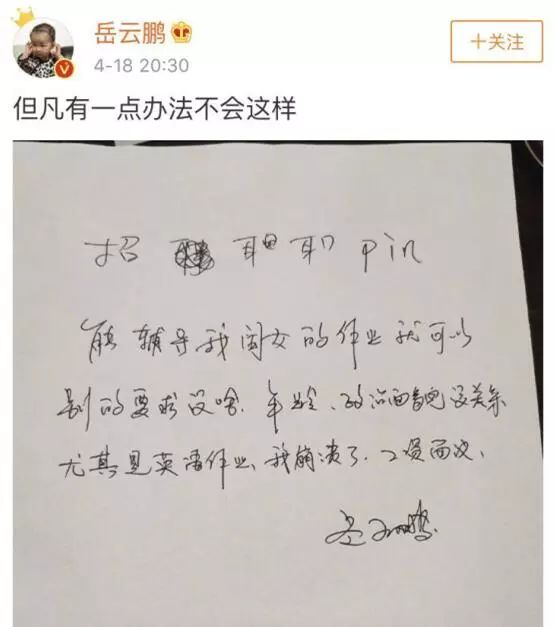 岳云鹏
4-18 20:30
+关注
但凡有一点办法不会这样
招 耳 职 pin
能辅导我闺女的作业就可以
别的要求没啥、年龄、政治面貌没关系
尤其是英语作业、我崩溃了、工资面议、
岳云鹏